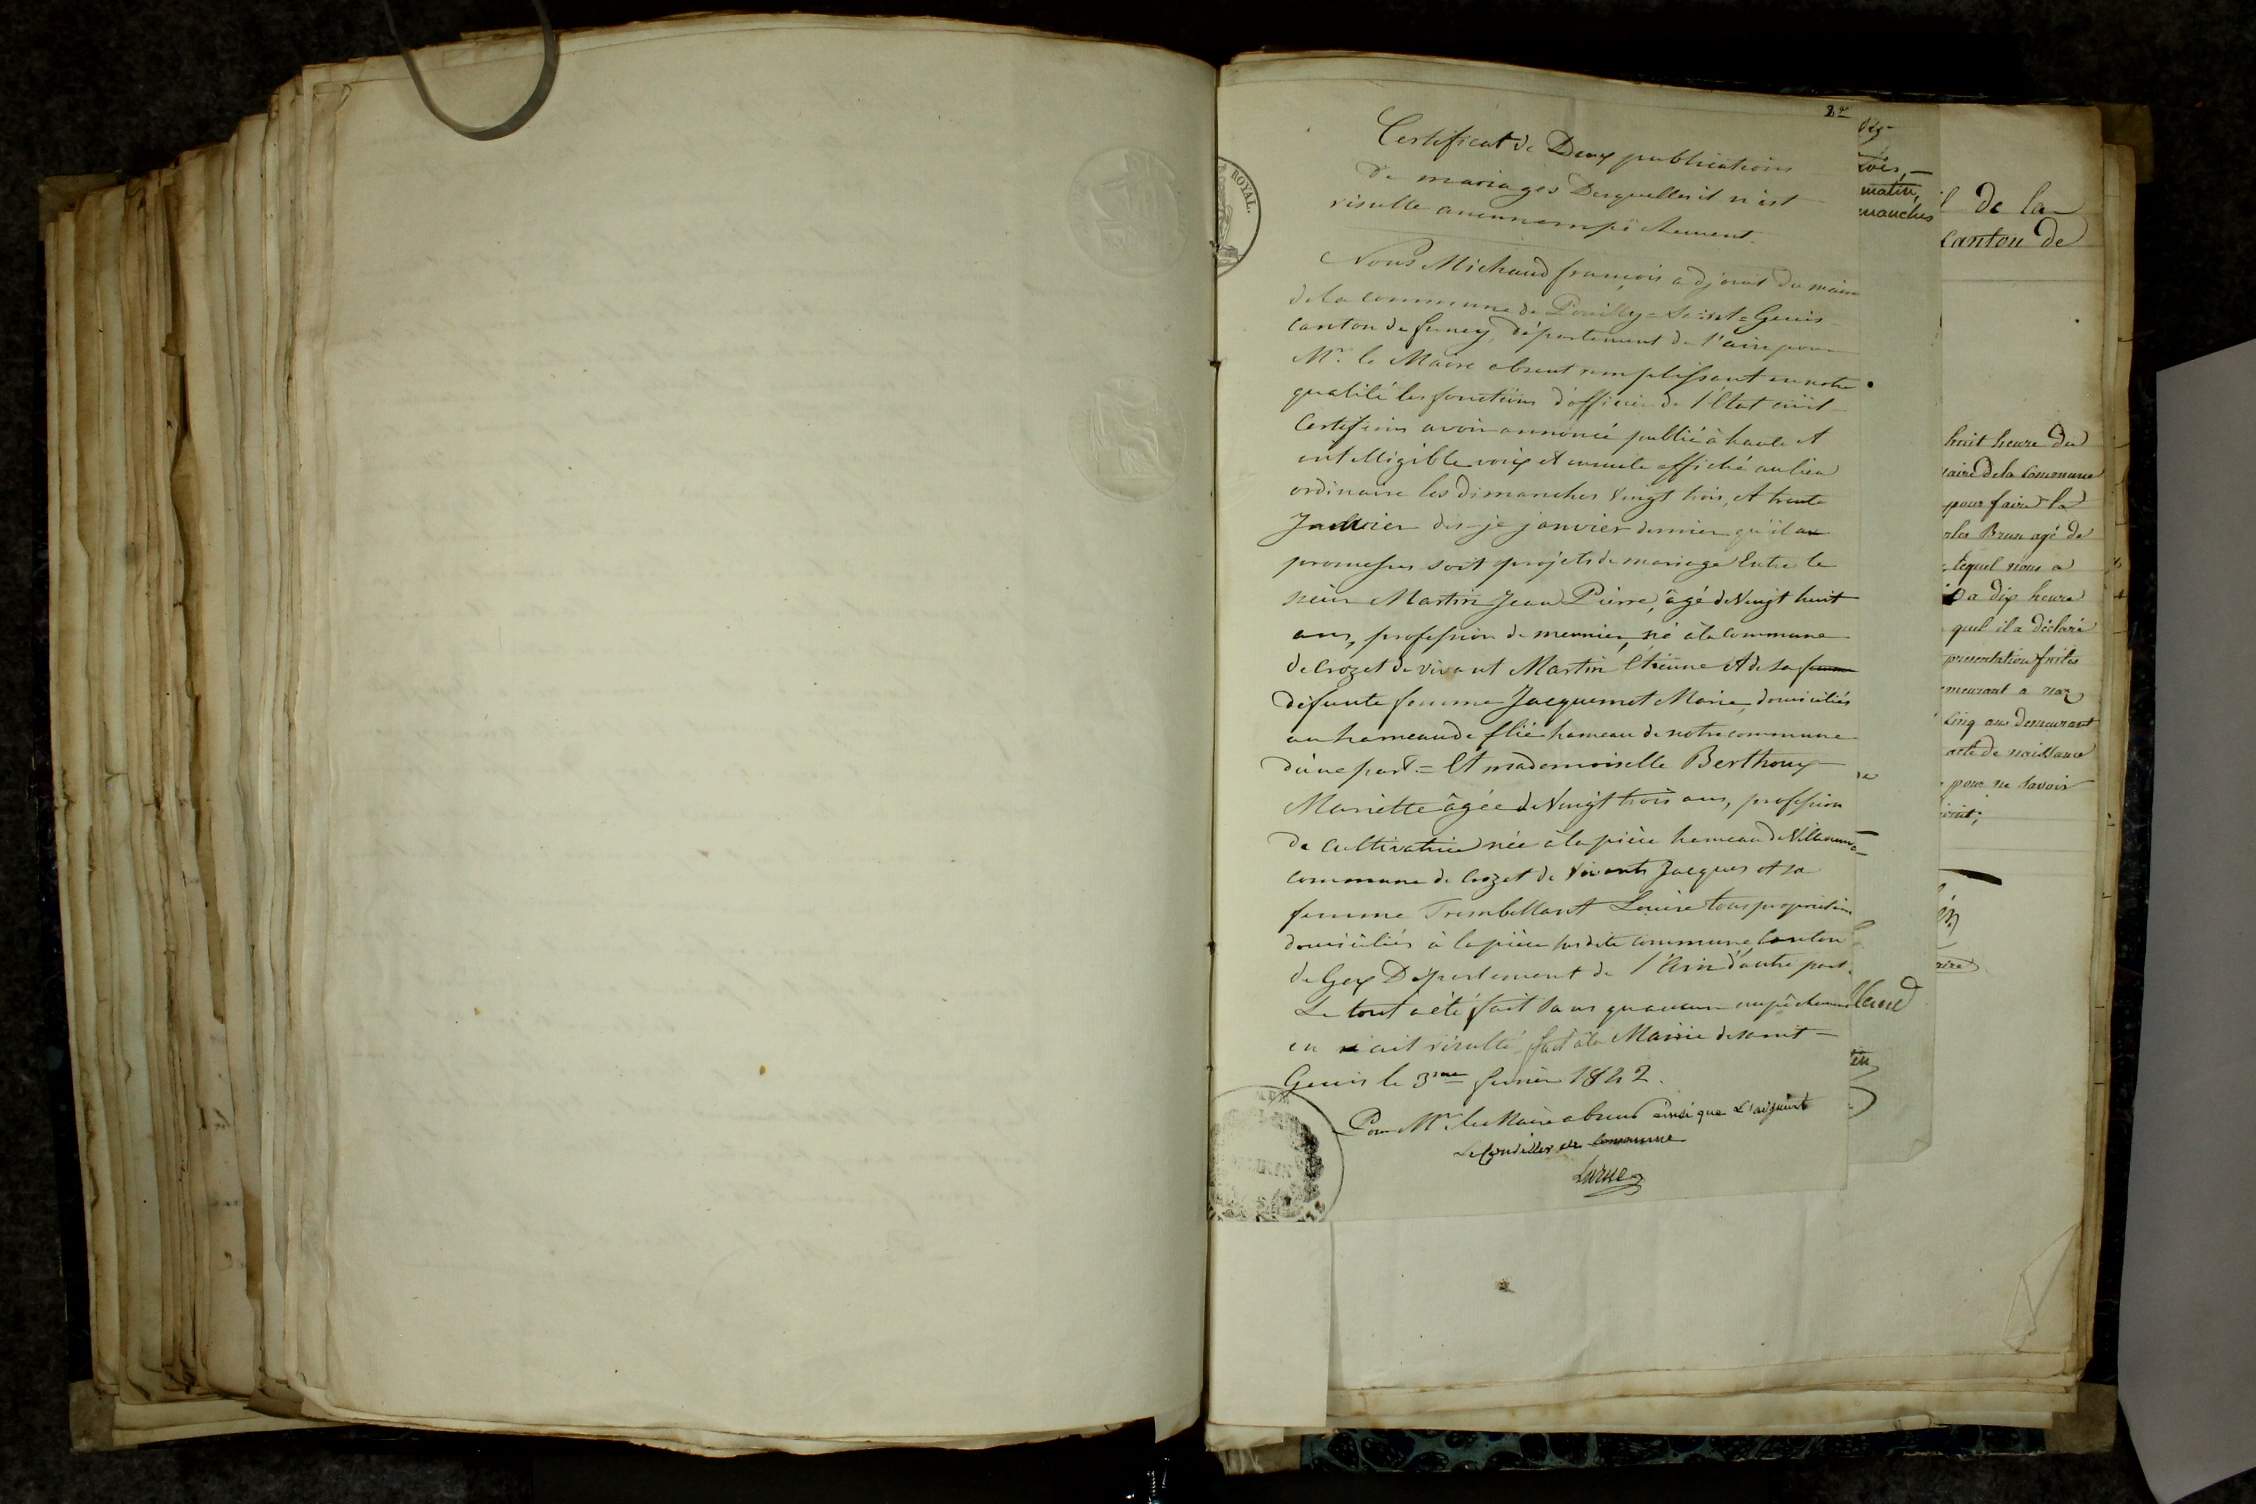 ROYAL.
2e
Certificat de Deux publications
de mariages Desquelles il n'est
résulté aucun empêchement.
Nous Michaud françois adjoint du maire
de la commune de Pouilly = Saint = Genis
canton de ferney, département de l'ain pour
Mr. le Maire absent remplissant en notre
qualité les fonctions d'officier de l'Etat civil
Certifions avoir annoncé publié à haute et
intelligible voix et ensuite affiché au lieu
ordinaire les dimanches vingt trois, et trente
Janvier dis-je janvier dernier qu'il
promesses soit projets de mariage Entre le
sieur Martin Jean Pierre, âgé de Vingt huit
ans, profession de meunier, né à la commune
de Crozet de vivant Martin Etienne et de sa femme
défunte femme Jacquemet Marie, domiciliés
au hameau de flié hameau de notre commune
d'une part = Et mademoiselle Berthoux
Mariette âgée de Vingt trois ans, profession
de cultivatrice née à la pièce hameau de Villeneuve
commune de Crozet de Vivants Jacques et sa
femme Trembellant Louise tous propriétaires
domiciliés à la pièce susdite commune, Canton
de Gex Département de l'Ain d'autre part.
Le tout a été fait sans qu'aucun empêchement
en ait résulté, fait à la Mairie de saint
Genis le 3me fevrier 1842.
Pour Mr. le Maire absent ainsi que L'adjoint
Le Conseiller de Commune
Larue
voir,
matin,
manches
l de la
canton de
huit heure du
maire de la Commune
pour faire la
rles Brun agé de
lequel nous a
a dix heure
quel il a déclaré
presentation faites
emeurant a naz
cinq ans demeurant
acte de naissance
pour ne savoir
lland